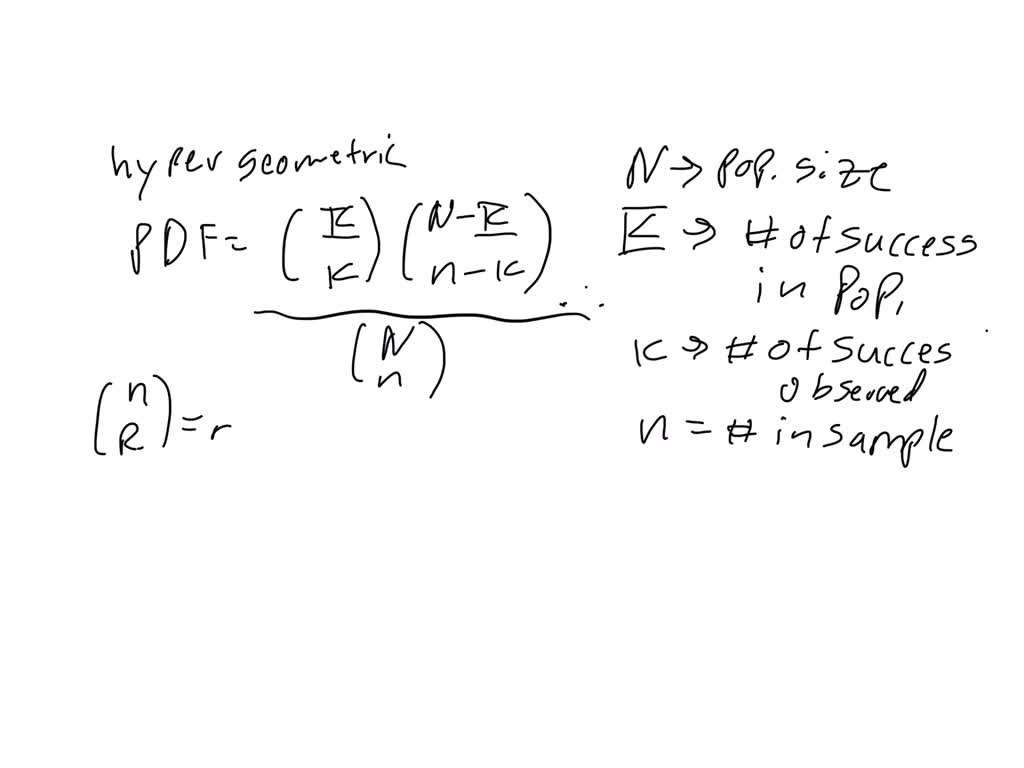 hypergeometric
PDF = (K̲ k) (N-K̲ n-k)
(N n)
(n R) = r
N → pop. size
K̲ → # of success
in pop.
k → # of succes
observed
n = # in sample